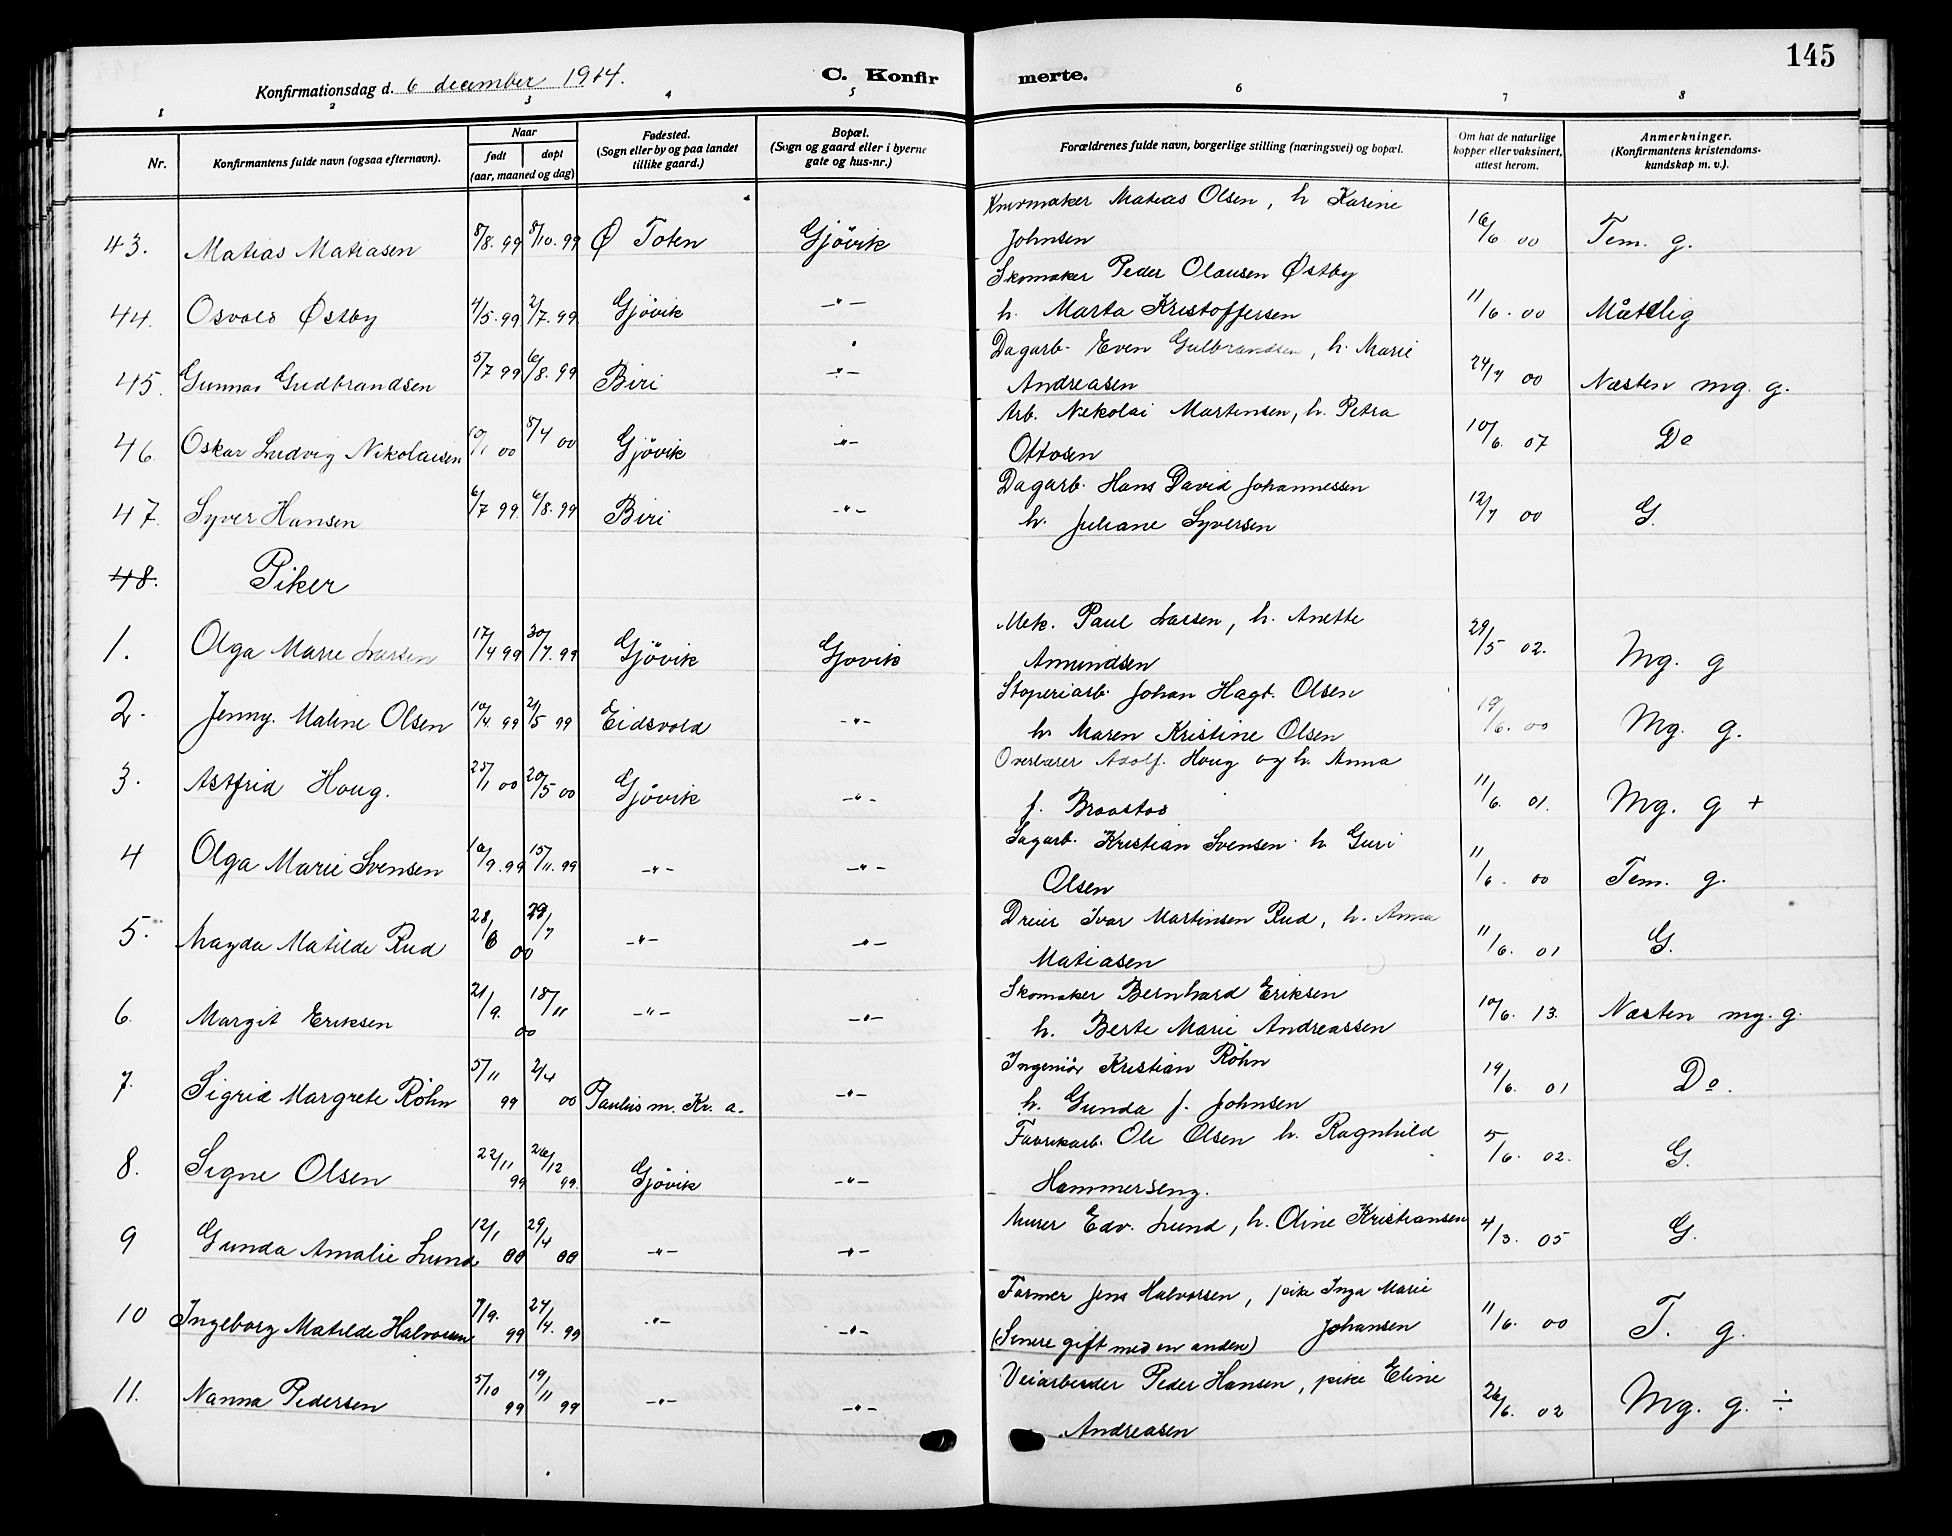 145
Konfirmationsdag d. 6 december 1914. C. Konfirmerte.
1 2 3 4 5 6 7 8
Nr. Konfirmantens fulde navn (ogsaa efternavn). Naar født døpt (aar, maaned og dag) Fødested. (Sogn eller by og paa landet tillike gaard.) Bopæl. (Sogn og gaard eller i byerne gate og hus-nr.) Forældrenes fulde navn, borgerlige stilling (næringsvei) og bopæl. Om hat de naturlige kopper eller vaksinert, attest herom. Anmerkninger. (Konfirmantens kristendomskundskap m. v.).
43. Matias Matiasen 8/8. 99 8/10. 99 Ø Toten Gjövik Kurvmaker Matias Olsen, h Karine
Johnsen 16/6 00 Tem. g.
44. Osvald Østby 4/5. 99 2/7. 99 Gjövik -"- Skomaker Peder Olausen Østby
h. Marta Kristoffersen 11/6. 00 Måtelig
45. Gunnar Gudbrandsen 5/7 99 6/8. 99 Biri -"- Dagarb. Even Gulbrandsen, h. Marie
Andreasen 24/7 00 Næsten mg. g.
46. Oskar Ludvig Nikolaisen 10/1 00 8/4 00 Gjövik -"- Arb. Nikolai Martinsen, h. Petra
Ottosen 10/6. 07 Do
47. Syver Hansen 6/7 99 6/8. 99 Biri -"- Dagarb. Hans David Johannessen
h. Juliane Syversen 12/7 00 G.
48. Piker
1. Olga Marie Larsen 17/4 99 30/7. 99 Gjövik Gjovik Mek. Paul Larsen, h. Anette
Amundsen 29/5 02. Mg. g
2. Jenny. Maline Olsen 10/4 99 21/5 99 Eidsvold -"- Stoperiarb. Johan Hagt. Olsen
h. Maren Kristine Olsen 19/6. 00 Mg. g.
3. Astfrid Houg. 25/1 00 20/5 00 Gjövik -"- Overlærer Adolf. Houg og h. Anna
f. Braastad 11/6. 01. Mg. g +
4 Olga Marie Svensen 16/9. 99 15/11. 99 -"- -"- Sagarb. Kristian Svensen h Guri
Olsen 11/6. 00 Tem. g.
5. Magda Matilde Rud 28/6 29/7 00 -"- -"- Dreier Ivar Martinsen Rud, h. Anna
Matiasen 11/6. 01 G.
6. Margit Eriksen 21/9. 18/11 00 -"- -"- Skomaker Bernhard Eriksen
h. Berte Marie Andreassen 10/6. 13. Næsten mg. g.
7. Sigrid Margrete Röhn 5/11 99 2/4 00 Paulus m. Kr. a. -"- Ingeniör Kristian Röhn
h. Gunda f. Johnsen 19/6. 01 Do.
8. Signe Olsen 22/11 99 26/12 99. Gjövik -"- Favrikarb. Ole Olsen h. Ragnhild
Hammerseng. 5/6. 02. G.
9 Gunda Amalie Lund 12/1 00 29/4 00 -"- -"- Murer Edv. Lund, h. Oline Kristiansen 4/3. 05 G.
10 Ingeborg Matilde Halvorsen 7/9. 99 24/4. 99 -"- -"- Former Jens Halvorsen, pike Inga Marie
(Senere gift med en anden) Johansen 11/6. 00 T. g.
11. Nanna Pedersen 5/10 99 19/11 99 -"- -"- Veiarbeider Peder Hansen, pike Eline
Andreasen 26/6. 02 Mg. g. ÷